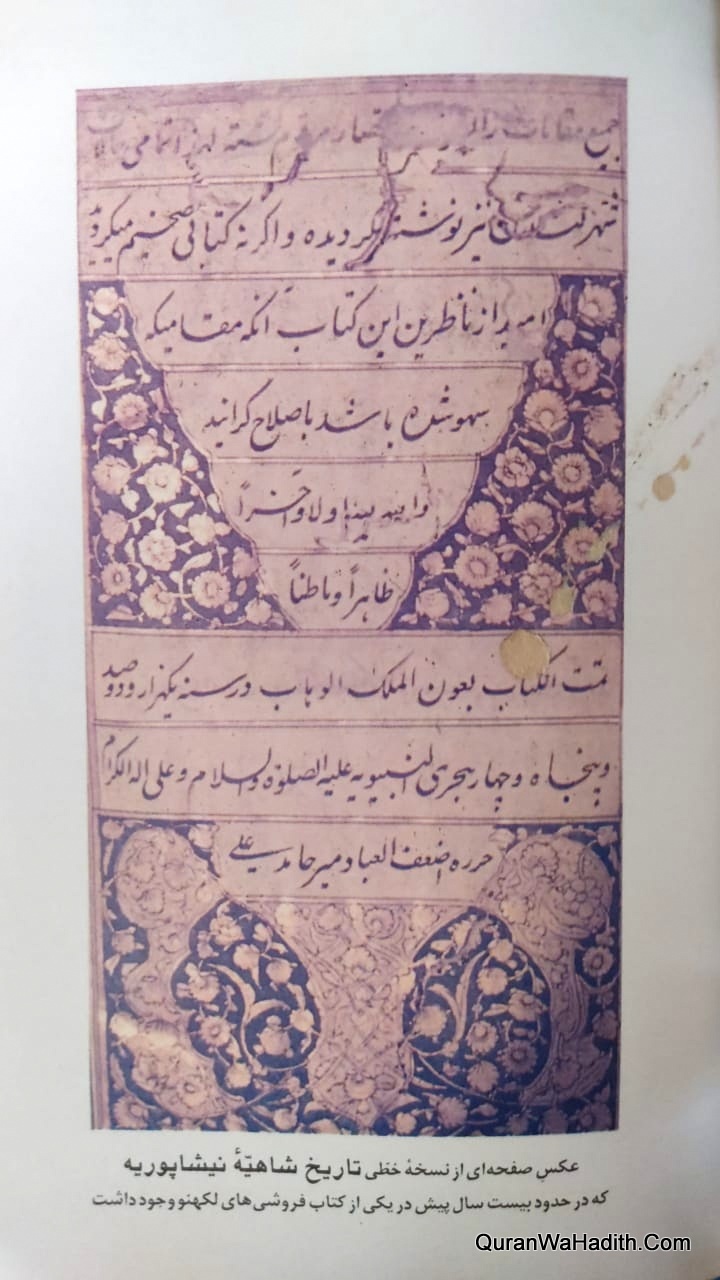 جمیع مقامات را
شهر نیز نوشته گردیده و اگر نه کتابی ضخیم میگردید
امید از ناظرین این کتاب آنکه مقامیکه
سهو شده باشد باصلاح گرانید
اولا و آخراً
ظاهراً و باطناً
تمت الکتاب بعون الملک الوهاب در سنه یکهزار و دوصد
و پنجاه و چهار هجری النبویه علیه الصلوة والسلام و علی اله الکرام
حرره اضعف العباد میر حامد علی
عکسِ صفحه‌ای از نسخهٔ خطّی تاریخ شاهیّهٔ نیشاپوریه
که در حدود بیست سال پیش در یکی از کتاب فروشی‌های لکهنو وجود داشت
QuranWaHadith.Com